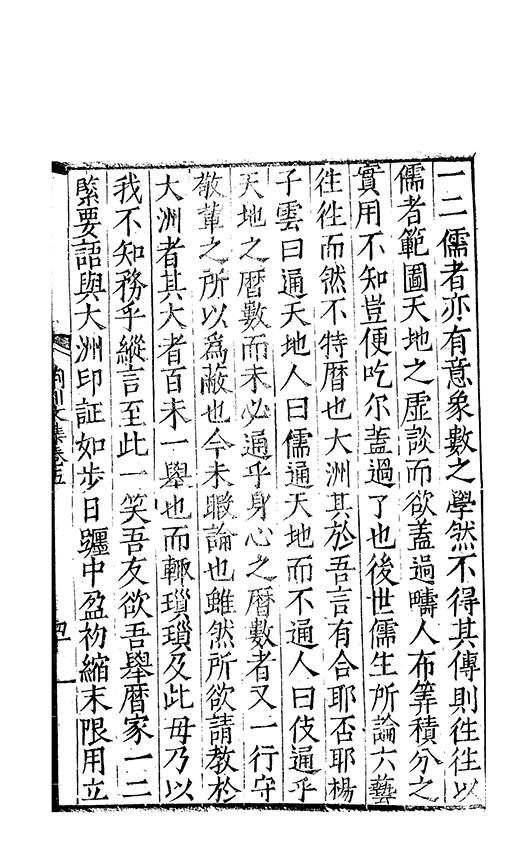 一二儒者亦有意象數之學然不得其傳則徃徃以
儒者範圍天地之虛談而欲蓋過疇人布筭積分之
實用不知豈便吃尔蓋過了也後世儒生所論六藝
徃徃而然不特曆也大洲其於吾言有合耶否耶楊
子雲曰通天地人曰儒通天地而不通人曰伎通乎
天地之曆數而未必通乎身心之曆數者又一行守
敬輩之所以為蔽也今未暇論也雖然所欲請教於
大洲者其大者百未一舉也而輙瑣瑣及此毋乃以
我不知務乎縱言至此一笑吾友欲吾舉曆家一二
緊要語與大洲印証如步日躔中盈朒縮末限用立
荆川文集卷五